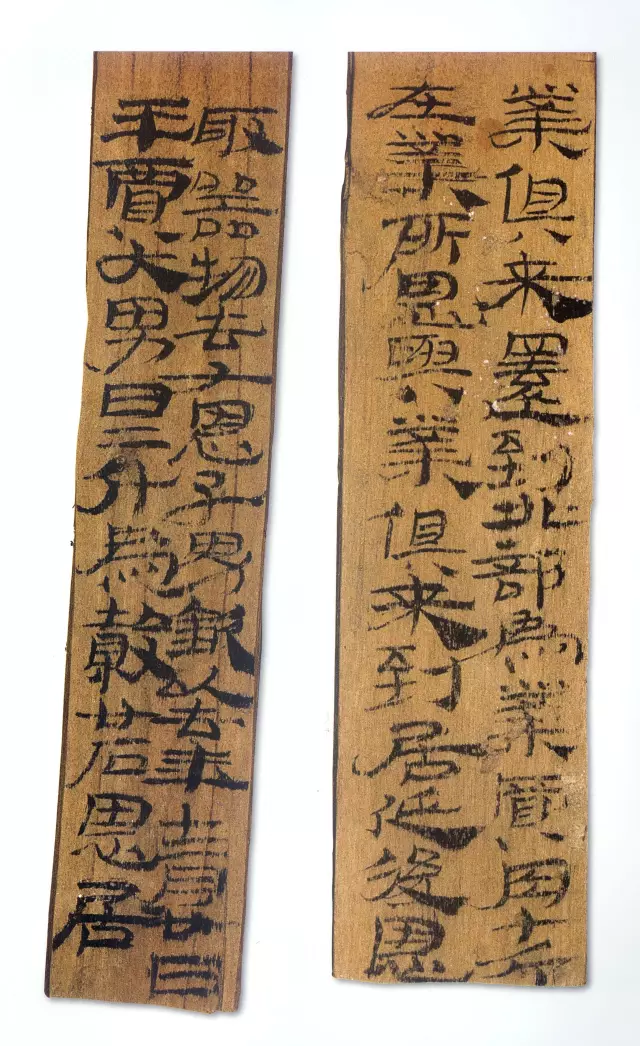 業俱来還到北部為業買肉十斤
在業所恩與業俱来到居延後恩
取器物去又恩子男欽以去年十二月廿日
平賈大男日二斗為穀廿石恩居